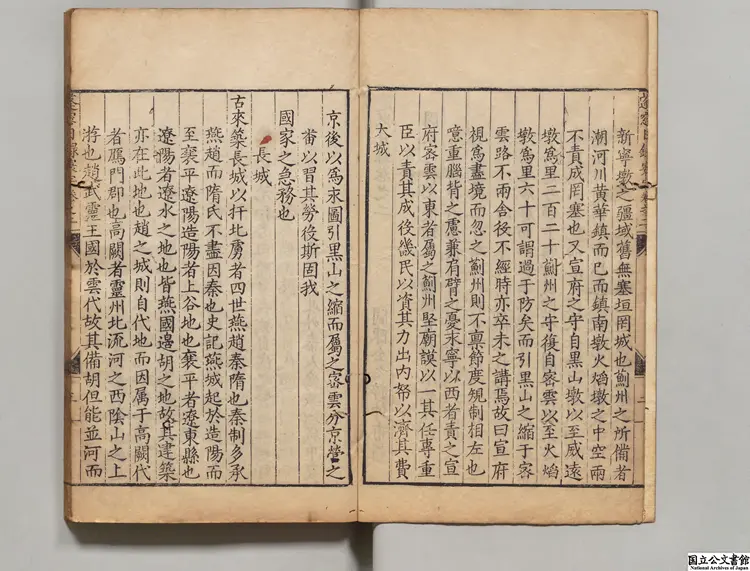 新寧墩之疆域舊無塞垣罔城也薊州之所備者
潮河川黃華鎮而已而鎮南墩火焰墩之中空兩
不責成罔塞也又宣府之守自黑山墩以至威遠
墩爲里二百二十薊州之守復自密雲以至火焰
墩爲里六十可謂過于防矣而引黑山之縮于密
雲路不兩舍役不經時亦卒未之講焉故曰宣府
視爲盡境而忽之薊州則不禀節度規制相左也
意重腦背之慮兼有肩臂之憂求寧以西者責之宣
府密雲以東者屬之薊州堅廟謨以一其任專重
臣以責其成後幾民以資其力出內帑以濟其費
大城
京後以爲永圖引黑山之縮而屬之密雲分京營之
畨以習其勞後斯固我
國家之急務也
長城
古來築長城以扞北虜者四世燕趙秦隋也秦制多承
燕趙而隋氏不盡因秦也史記燕城起於造陽而
至襄平遼陽造陽者上谷地也襄平者遼東縣也
遼陽者遼水之地也皆燕國邊胡之地故其建築
亦在此地也趙之城則自代地而因属于高闕代
者雁門郡也高闕者靈州北流河之西陰山之上
將也趙武靈王國於雲代故其備胡但能並河而
国立公文書館
National Archives of Japan